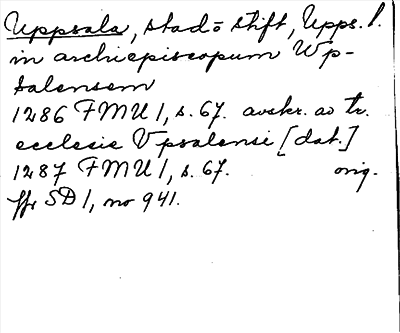 Uppsala, stad o stift, Upps. l.
in archiepiscopum Wp-
salensem
1286 FMU 1, s. 67. avskr. av tr.
ecclesie Vpsalensi [dat.]
1287 FMU 1, s. 67. orig.
jfr SD 1, no 941.